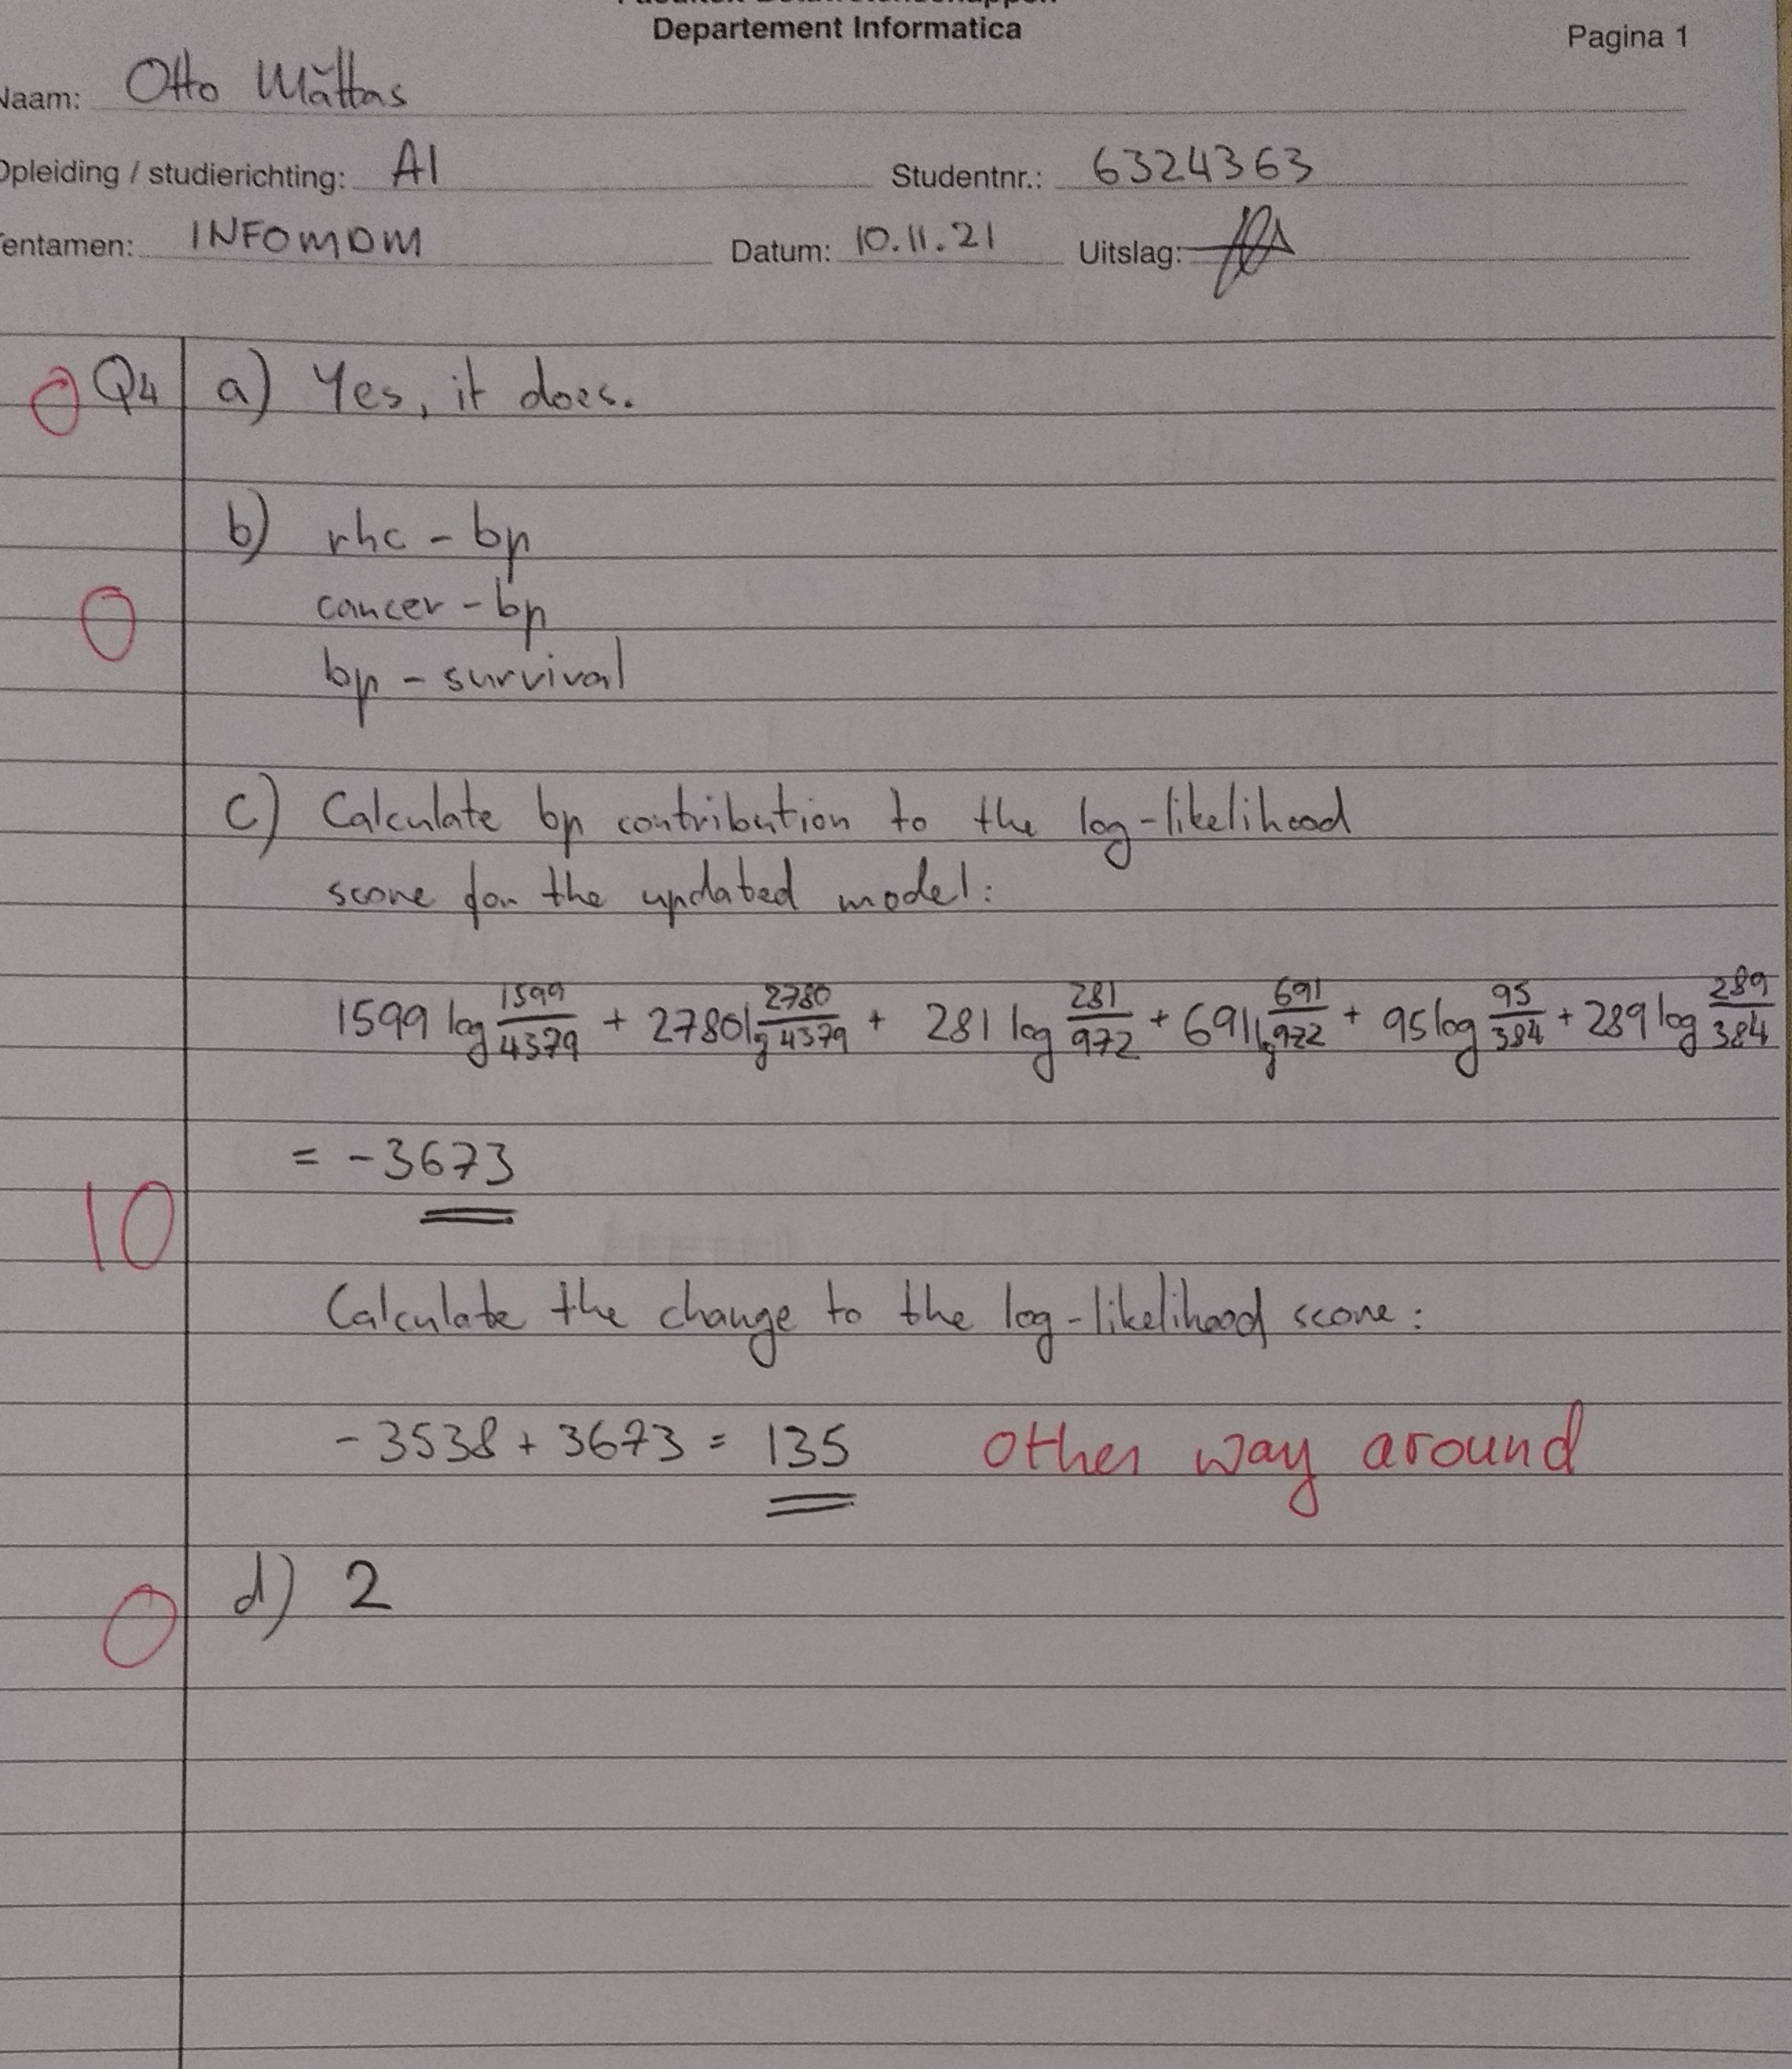 Departement Informatica
Pagina 1
Naam: Otto Mättas
Opleiding / studierichting: AI Studentnr.: 6324363
Tentamen: INFOMDM Datum: 10.11.21 Uitslag:
0 Q4 a) Yes, it does.
b) rhc - bp
cancer - bp
0
bp - survival
c) Calculate bp contribution to the log-likelihood
score for the updated model:
1599 log 1599/4379 + 2780 log 2780/4379 + 281 log 281/972 + 691 log 691/972 + 95 log 95/384 + 289 log 289/384
= -3673
10
Calculate the change to the log-likelihood score:
-3538 + 3673 = 135 other way around
0 d) 2